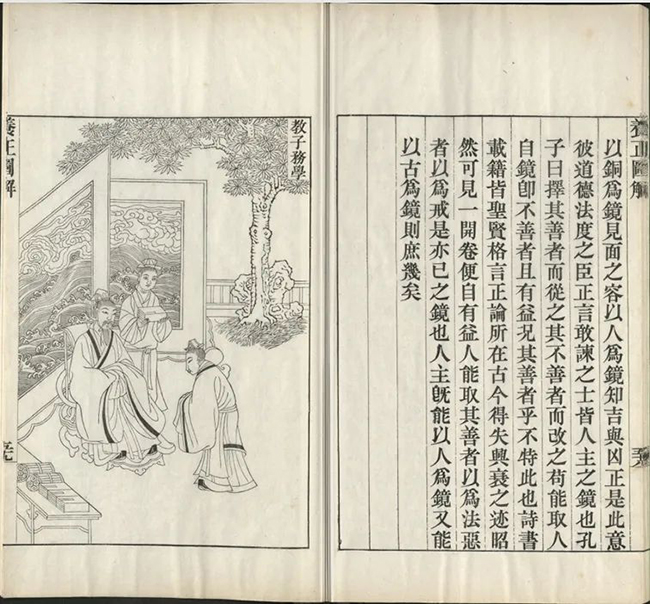 養正圖解
以銅爲鏡見面之容以人爲鏡知吉與凶正是此意
彼道德法度之臣正言敢諫之士皆人主之鏡也孔
子曰擇其善者而從之其不善者而改之苟能取人
自鏡卽不善者且有益况其善者乎不特此也詩書
載籍皆聖賢格言正論所在古今得失興衰之迹昭
然可見一開卷便自有益人能取其善者以爲法惡
者以爲戒是亦已之鏡也人主旣能以人爲鏡又能
以古爲鏡則庶幾矣
教子務學
養正圖解